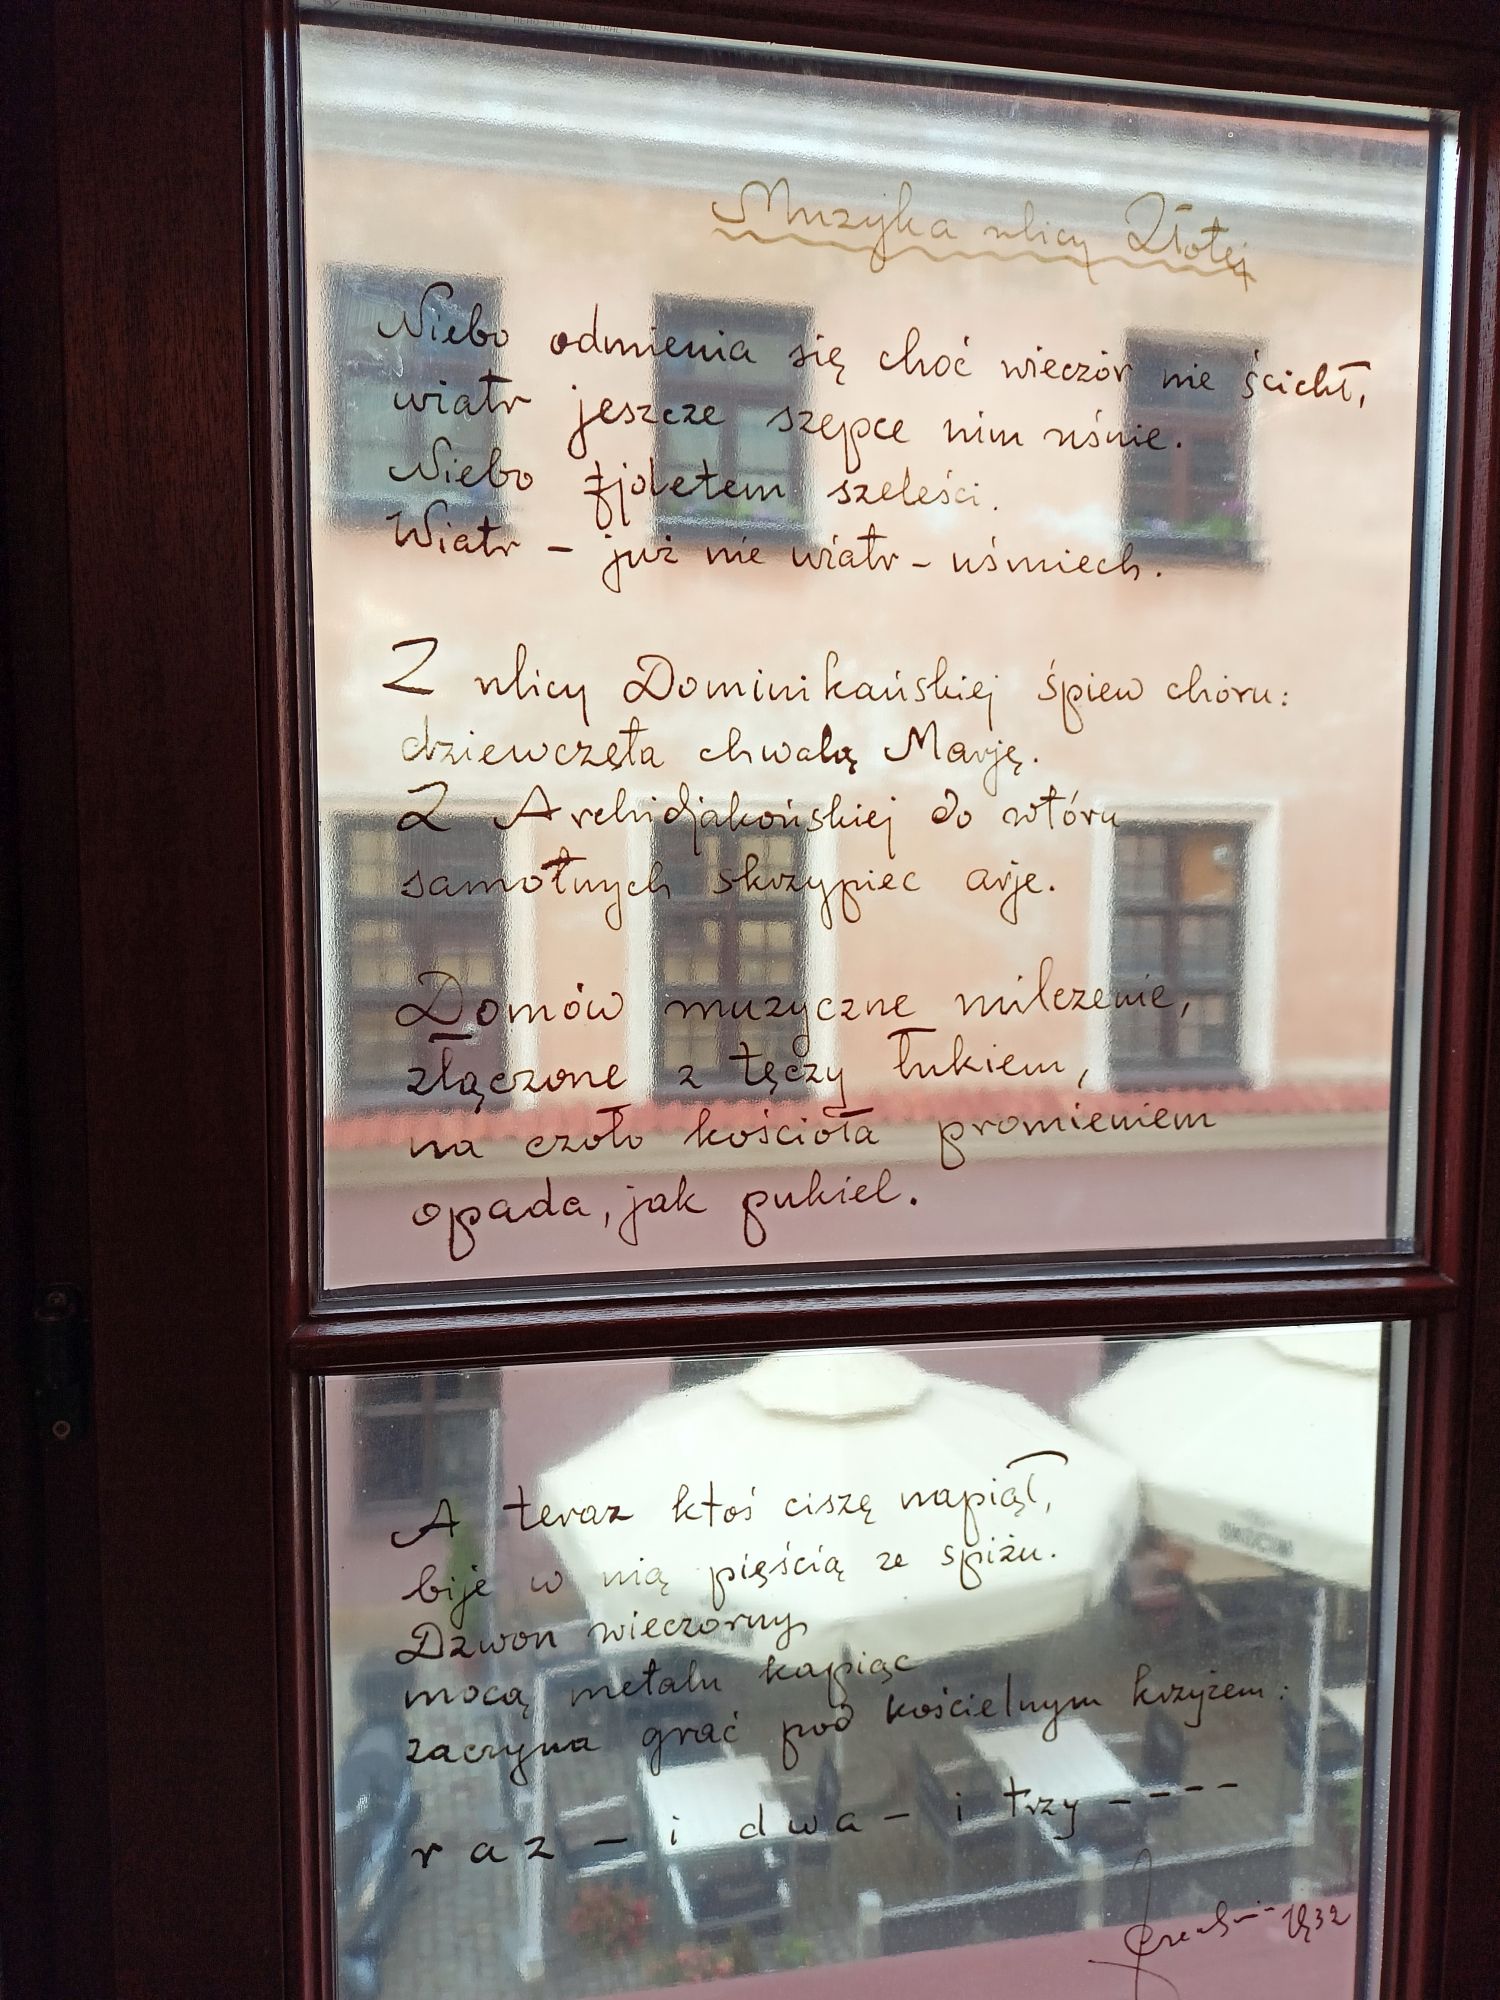 Muzyka ulicy Złotej
Niebo odmienia się choć wieczór nie ścichł,
wiatr jeszcze szepce nim uśnie.
Niebo fjoletem szeleści.
Wiatr – już nie wiatr – uśmiech.
Z ulicy Dominikańskiej śpiew chóru:
dziewczęta chwalą Marję.
Z Archidjakońskiej do wtóru
samotnych skrzypiec arje.
Domów muzyczne milczenie,
złączone z tęczy łukiem,
na czoło kościoła promieniem
opada, jak pukiel.
A teraz ktoś ciszę napiął,
bije w nią pięścią ze spiżu.
Dzwon wieczorny
mocą metalu kapiąc
zaczyna grać pod kościelnym krzyżem:
raz – i dwa – i trzy – – – –
1932